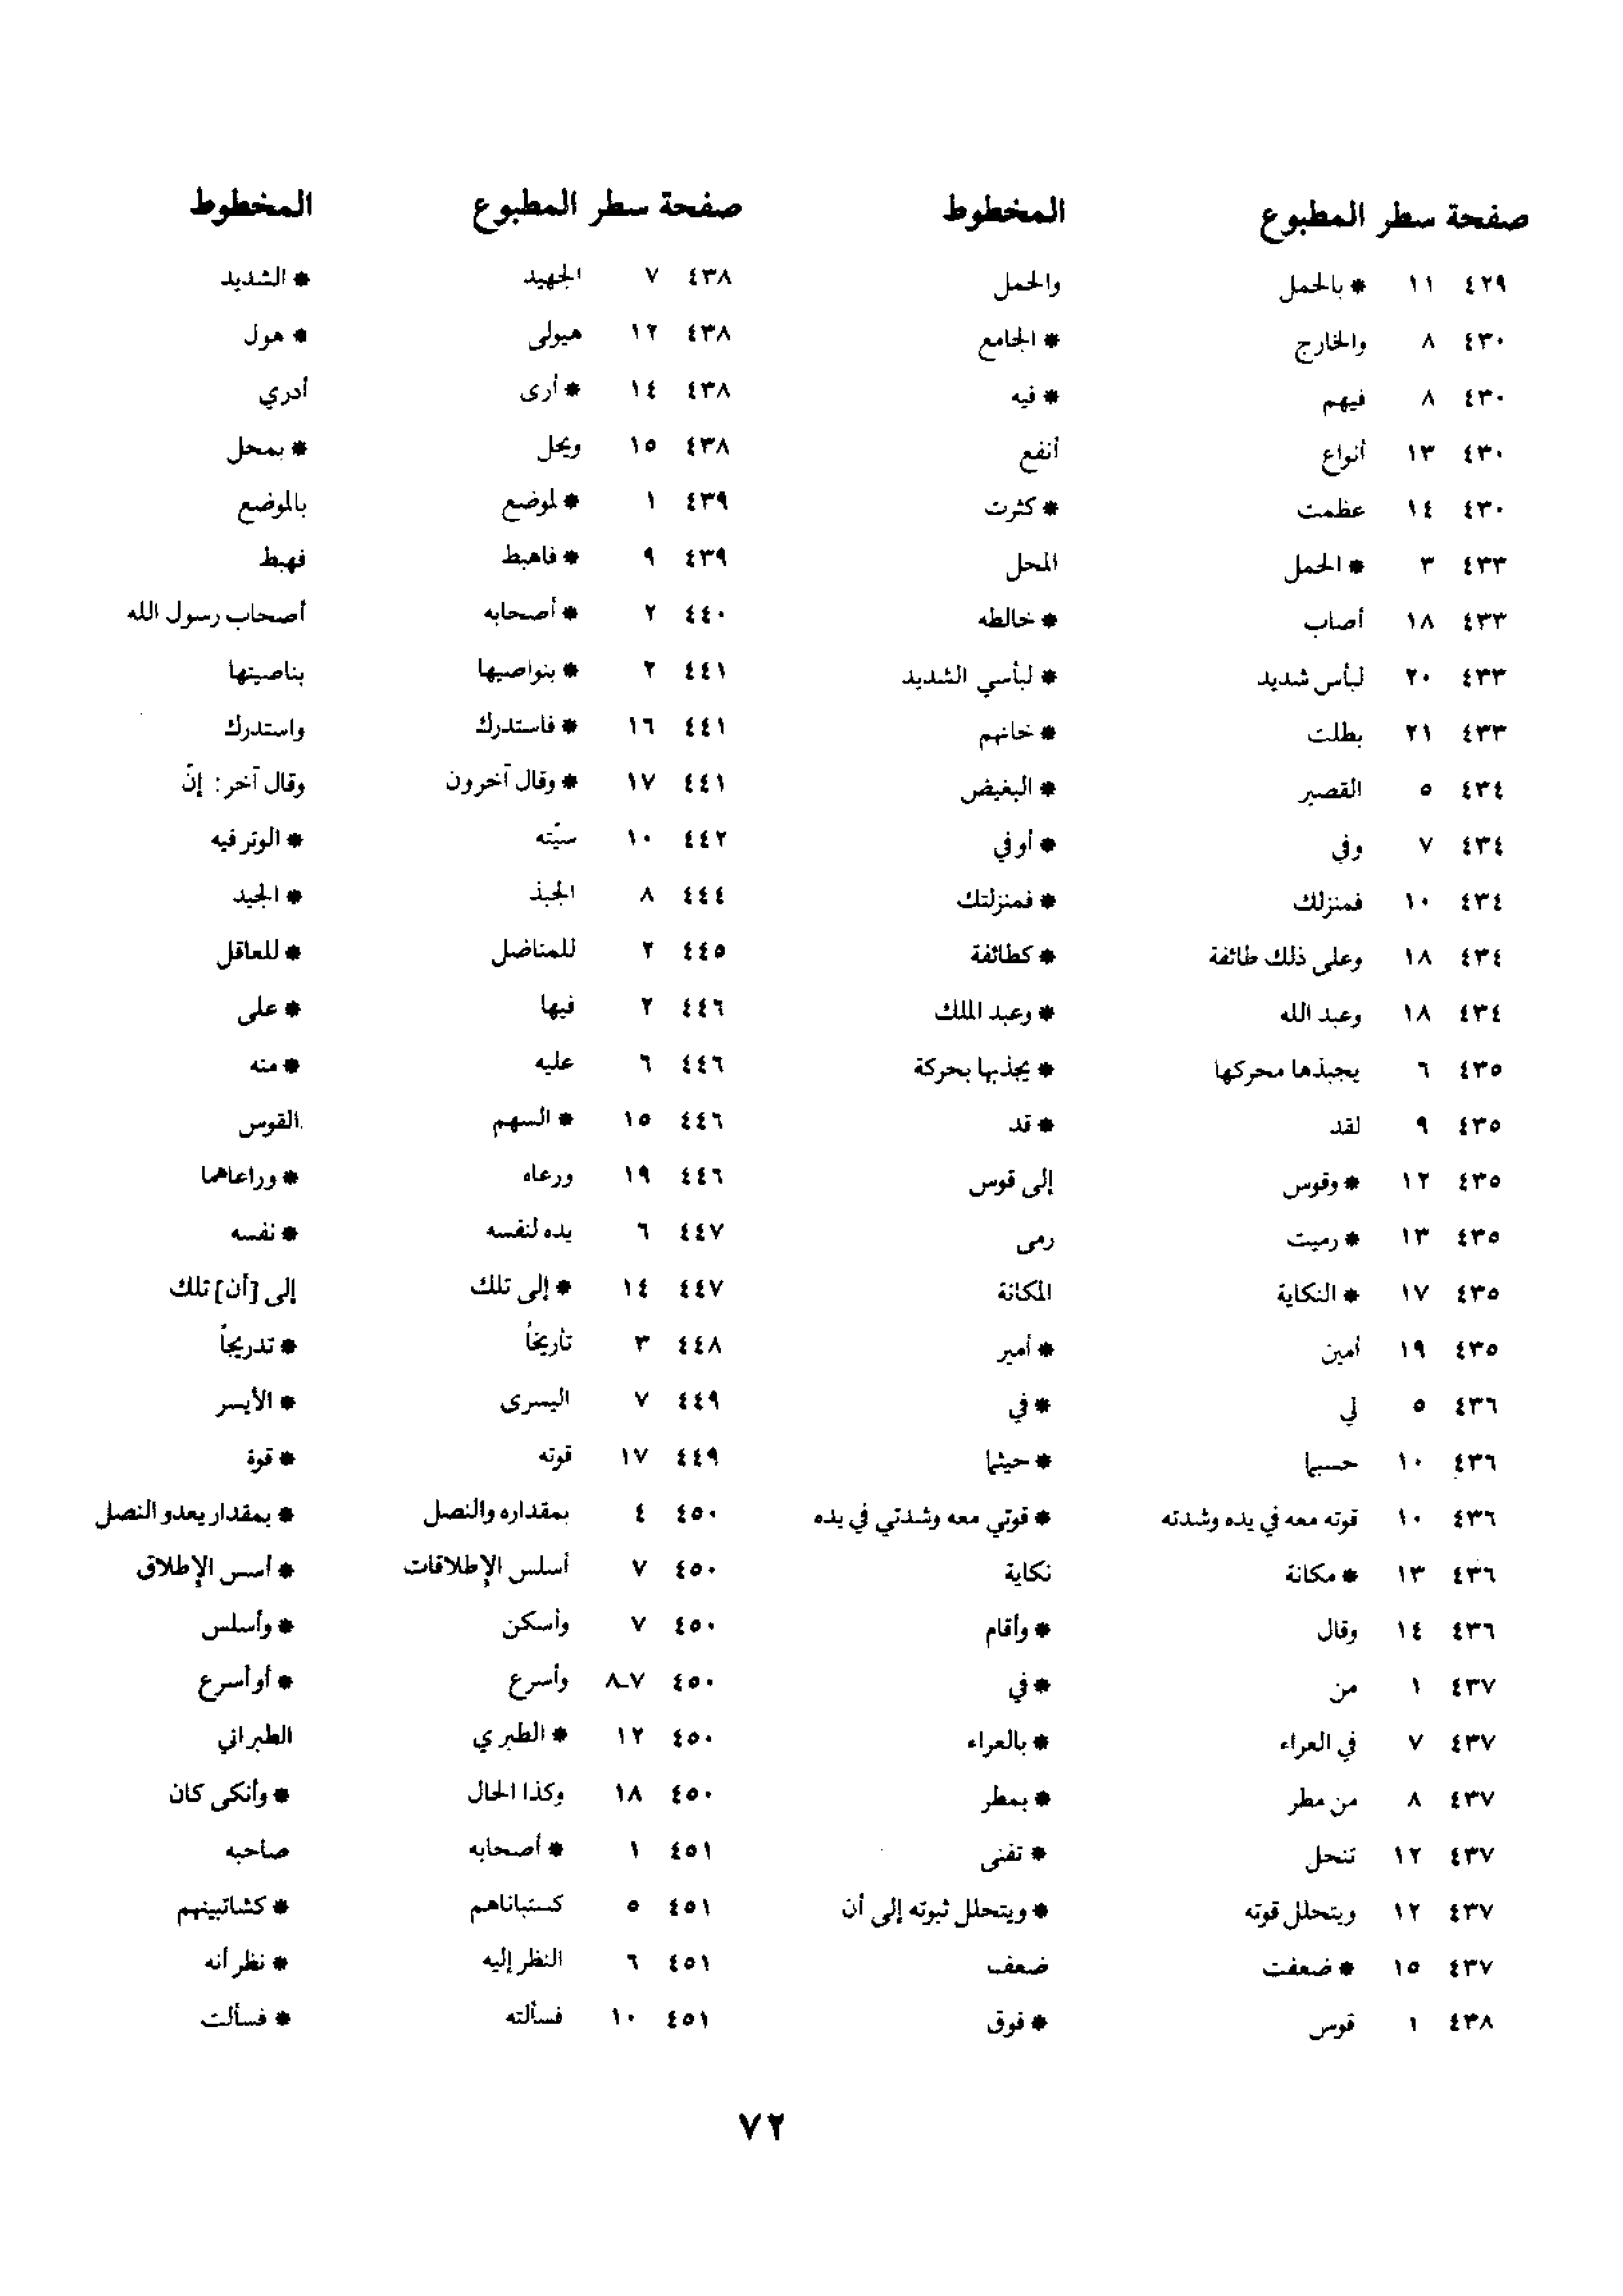 صفحة سطر المطبوع المخطوط
٤٢٩ ١١ * بالحمل والحمل
٤٣٠ ٨ والخارج * الجامع
٤٣٠ ٨ فيهم * فيه
٤٣٠ ١٣ أنواع أنفع
٤٣٠ ١٤ عظمت * كثرت
٤٣٣ ٣ * الحمل المحل
٤٣٣ ١٨ أصاب * خالطه
٤٣٣ ٢٠ لبأس شديد * لبأسي الشديد
٤٣٣ ٢١ بطلت * خانهم
٤٣٤ ٥ القصير * البغيض
٤٣٤ ٧ وفي * أو في
٤٣٤ ١٠ فمنزلك * فمنزلتك
٤٣٤ ١٨ وعلى ذلك طائفة * كطائفة
٤٣٤ ١٨ وعبد الله * وعبد الملك
٤٣٥ ٦ يجبذها محركها * يجذبها بحركة
٤٣٥ ٩ لقد * قد
٤٣٥ ١٢ * وقوس إلى قوس
٤٣٥ ١٣ * رميت رمى
٤٣٥ ١٧ * النكاية المكانة
٤٣٥ ١٩ أمين * أمير
٤٣٦ ٥ لي * في
٤٣٦ ١٠ حسبما * حيثما
٤٣٦ ١٠ قوته معه في يده وشدته * قوتي معه وشدتي في يده
٤٣٦ ١٣ * مكانة نكاية
٤٣٦ ١٤ وقال * وأقام
٤٣٧ ١ من * في
٤٣٧ ٧ في العراء * بالعراء
٤٣٧ ٨ من مطر * بمطر
٤٣٧ ١٢ تنحل * تفنى
٤٣٧ ١٢ ويتحلل قوته * ويتحلل ثبوته إلى أن
٤٣٧ ١٥ * ضعفت ضعف
٤٣٨ ١ قوس * فوق
صفحة سطر المطبوع المخطوط
٤٣٨ ٧ الجهيد * الشديد
٤٣٨ ١٢ هيولى * هول
٤٣٨ ١٤ * أرى أدري
٤٣٨ ١٥ ويحل * بمحل
٤٣٩ ١ * لموضع بالموضع
٤٣٩ ٩ * فاهبط فهبط
٤٤٠ ٢ * أصحابه أصحاب رسول الله
٤٤١ ٢ * بنواصيها بناصيتها
٤٤١ ١٦ * فاستدرك واستدرك
٤٤١ ١٧ * وقال آخرون وقال آخر: إنّ
٤٤٢ ١٠ سيّته * الوتر فيه
٤٤٤ ٨ الجبذ * الجيد
٤٤٥ ٢ للمناضل * للعاقل
٤٤٦ ٢ فيها * على
٤٤٦ ٦ عليه * منه
٤٤٦ ١٥ * السهم القوس
٤٤٦ ١٩ ورعاه * وراعاهما
٤٤٧ ٦ يده لنفسه * نفسه
٤٤٧ ١٤ * إلى تلك إلى [أن] تلك
٤٤٨ ٣ تأريخاً * تدريجاً
٤٤٩ ٧ اليسرى * الأيسر
٤٤٩ ١٧ قوته * قوة
٤٥٠ ٤ بمقداره والنصل * بمقدار يعدو النصل
٤٥٠ ٧ أسلس الإطلاقات * أسس الإطلاق
٤٥٠ ٧ وأسكن * وأسلس
٤٥٠ ٧ـ٨ وأسرع * أو أسرع
٤٥٠ ١٢ * الطبري الطبراني
٤٥٠ ١٨ وكذا الحال * وأنكى كان
٤٥١ ١ * أصحابه صاحبه
٤٥١ ٥ كستباناهم * كشاتبينهم
٤٥١ ٦ النظر إليه * نظر أنه
٤٥١ ١٠ فسألته * فسألت
٧٢